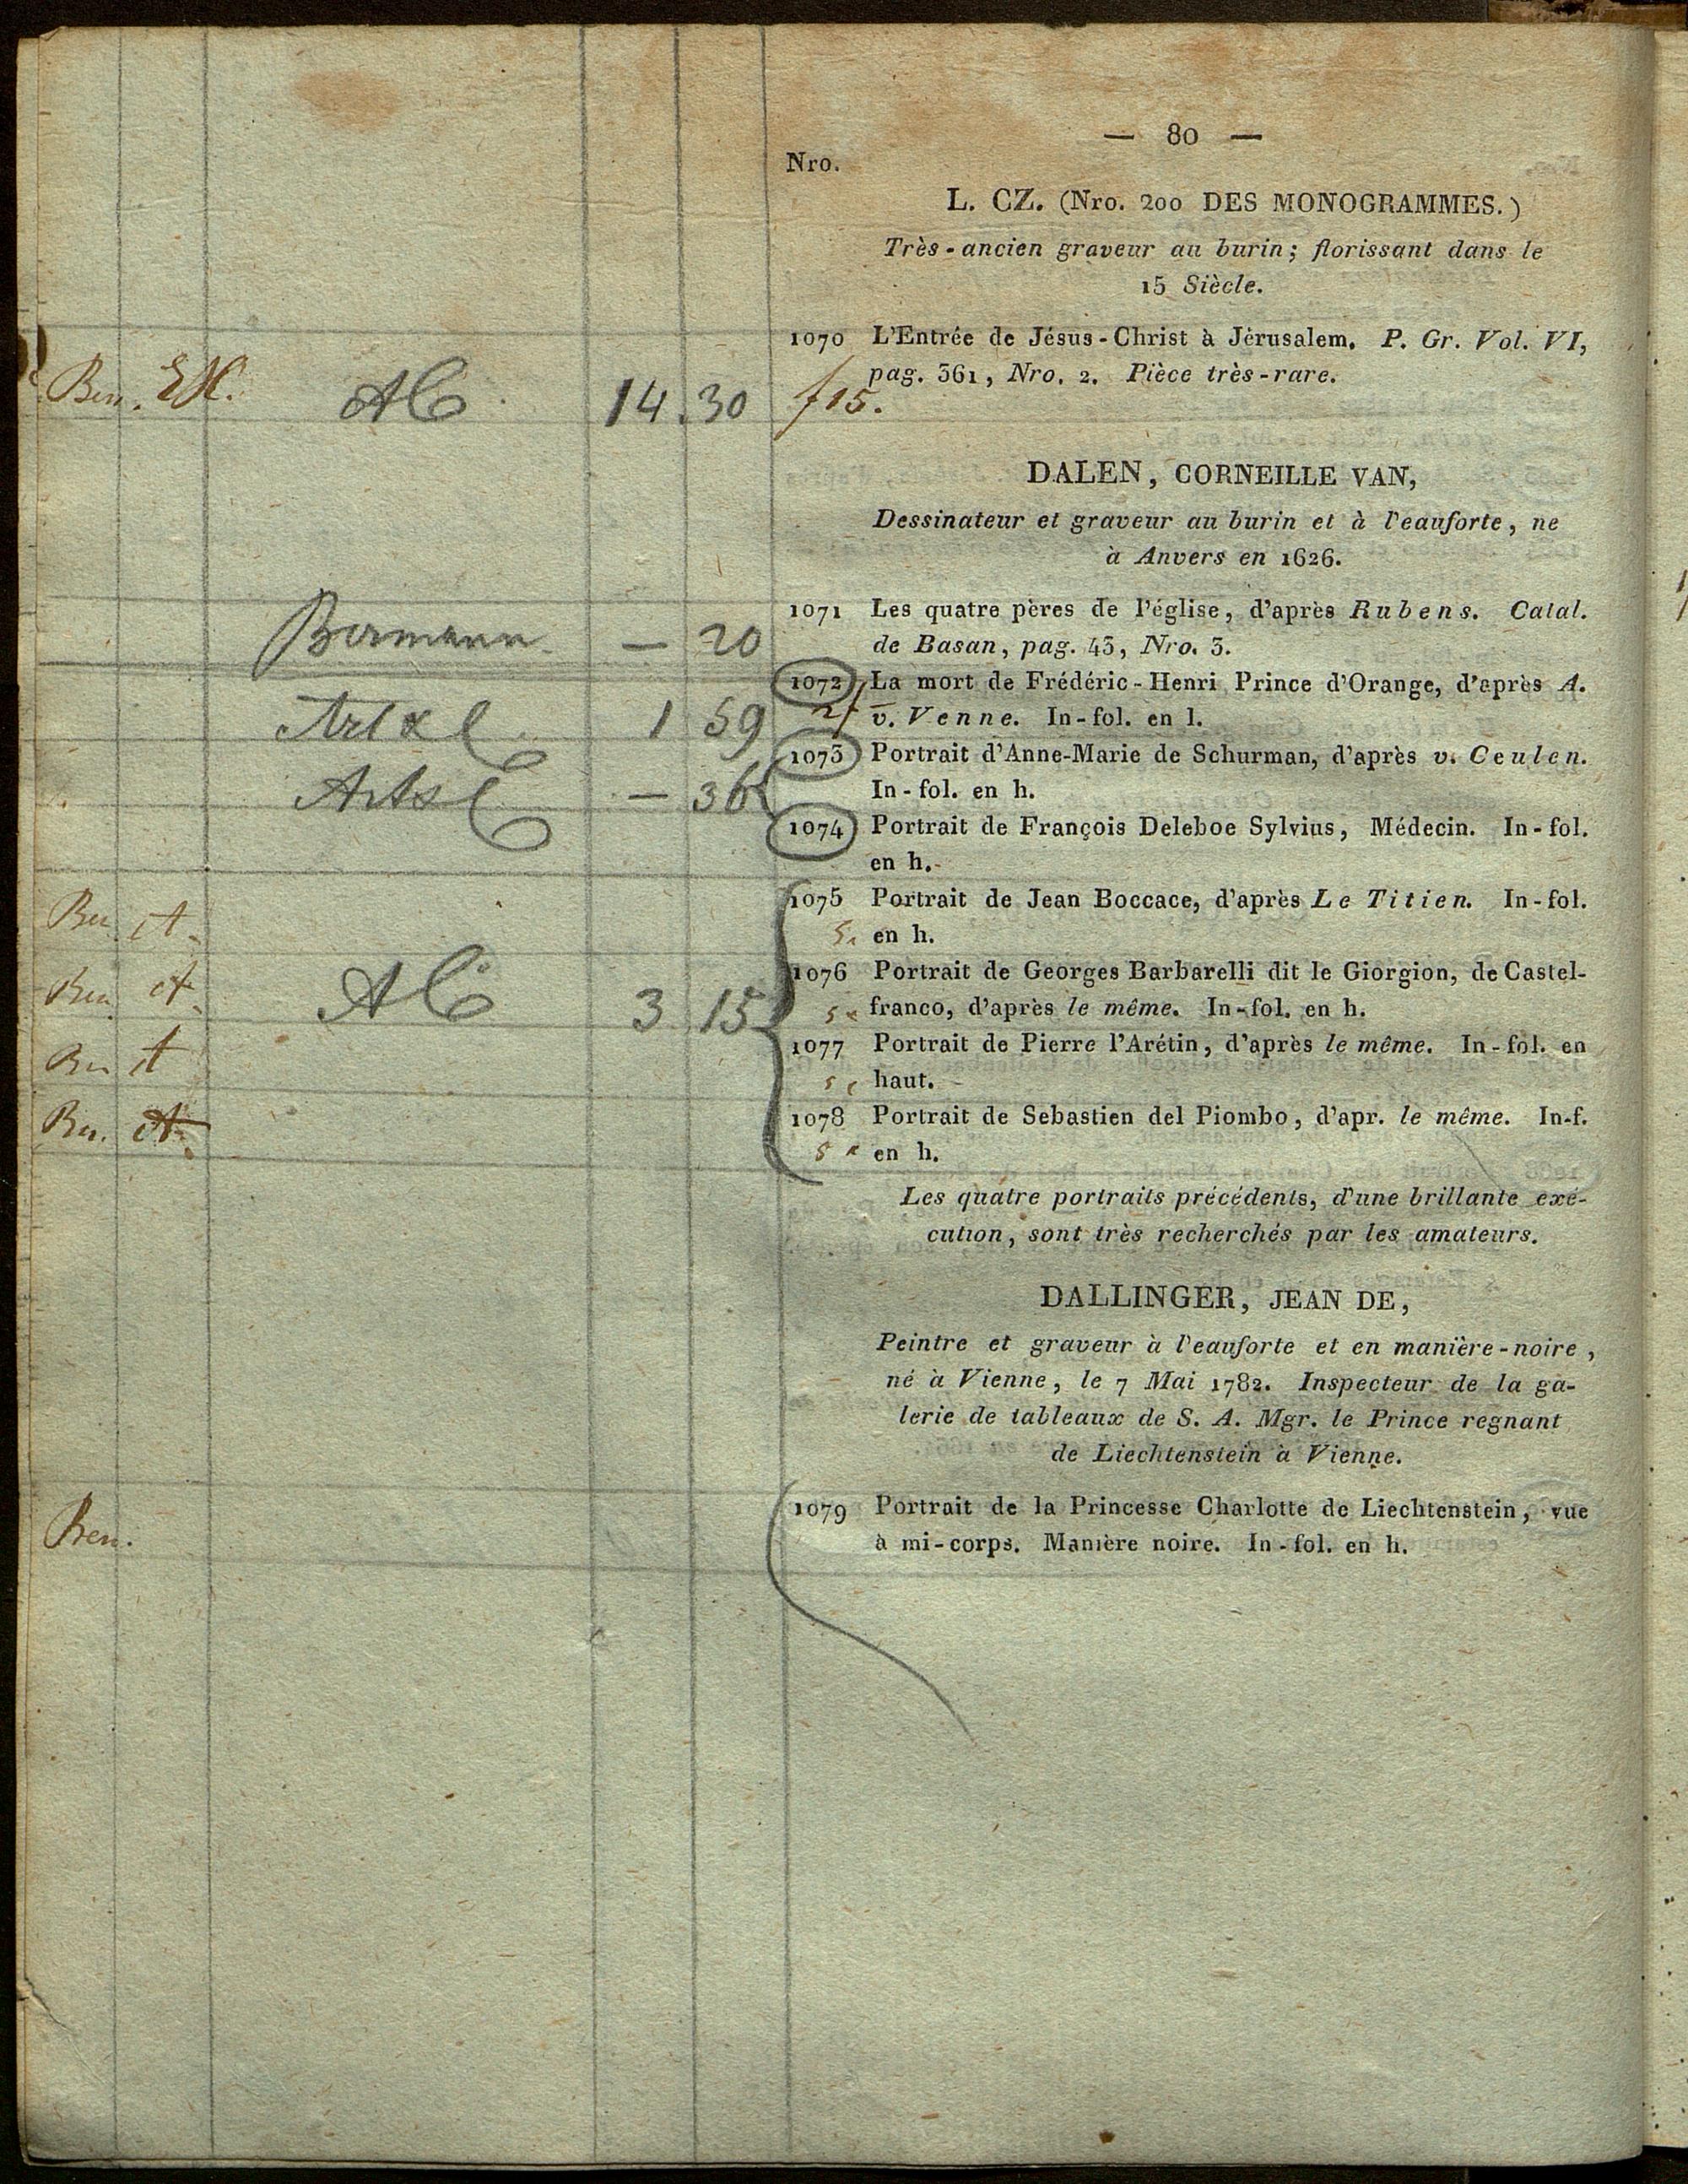 — 80 —
Nro.
L. CZ. (Nro. 200 DES MONOGRAMMES.)
Très-ancien graveur au burin; florissant dans le
15 Siècle.
1070 L'Entrée de Jésus-Christ à Jérusalem. P. Gr. Vol. VI,
pag. 361, Nro. 2. Pièce très-rare.
Ben. 14.30 f15.
DALEN, CORNEILLE VAN,
Dessinateur et graveur au burin et à l'eauforte, ne
à Anvers en 1626.
1071 Les quatre pères de l'église, d'après Rubens. Catal.
de Basan, pag. 43, Nro. 3.
Bermann — 20
1072 La mort de Frédéric-Henri Prince d'Orange, d'après A.
v. Venne. In-fol. en l.
1 59 2f
1073 Portrait d'Anne-Marie de Schurman, d'après v. Ceulen.
In-fol. en h.
— 36
1074 Portrait de François Deleboe Sylvius, Médecin. In-fol.
en h.
1075 Portrait de Jean Boccace, d'après Le Titien. In-fol.
en h.
1076 Portrait de Georges Barbarelli dit le Giorgion, de Castel-
franco, d'après le même. In-fol. en h.
3 15
1077 Portrait de Pierre l'Arétin, d'après le même. In-fol. en
haut.
1078 Portrait de Sebastien del Piombo, d'apr. le même. In-f.
en h.
Les quatre portraits précédents, d'une brillante exé-
cution, sont très recherchés par les amateurs.
DALLINGER, JEAN DE,
Peintre et graveur à l'eauforte et en manière-noire,
né à Vienne, le 7 Mai 1782. Inspecteur de la ga-
lerie de tableaux de S. A. Mgr. le Prince regnant
de Liechtenstein à Vienne.
1079 Portrait de la Princesse Charlotte de Liechtenstein, vue
à mi-corps. Manière noire. In-fol. en h.
Ben.